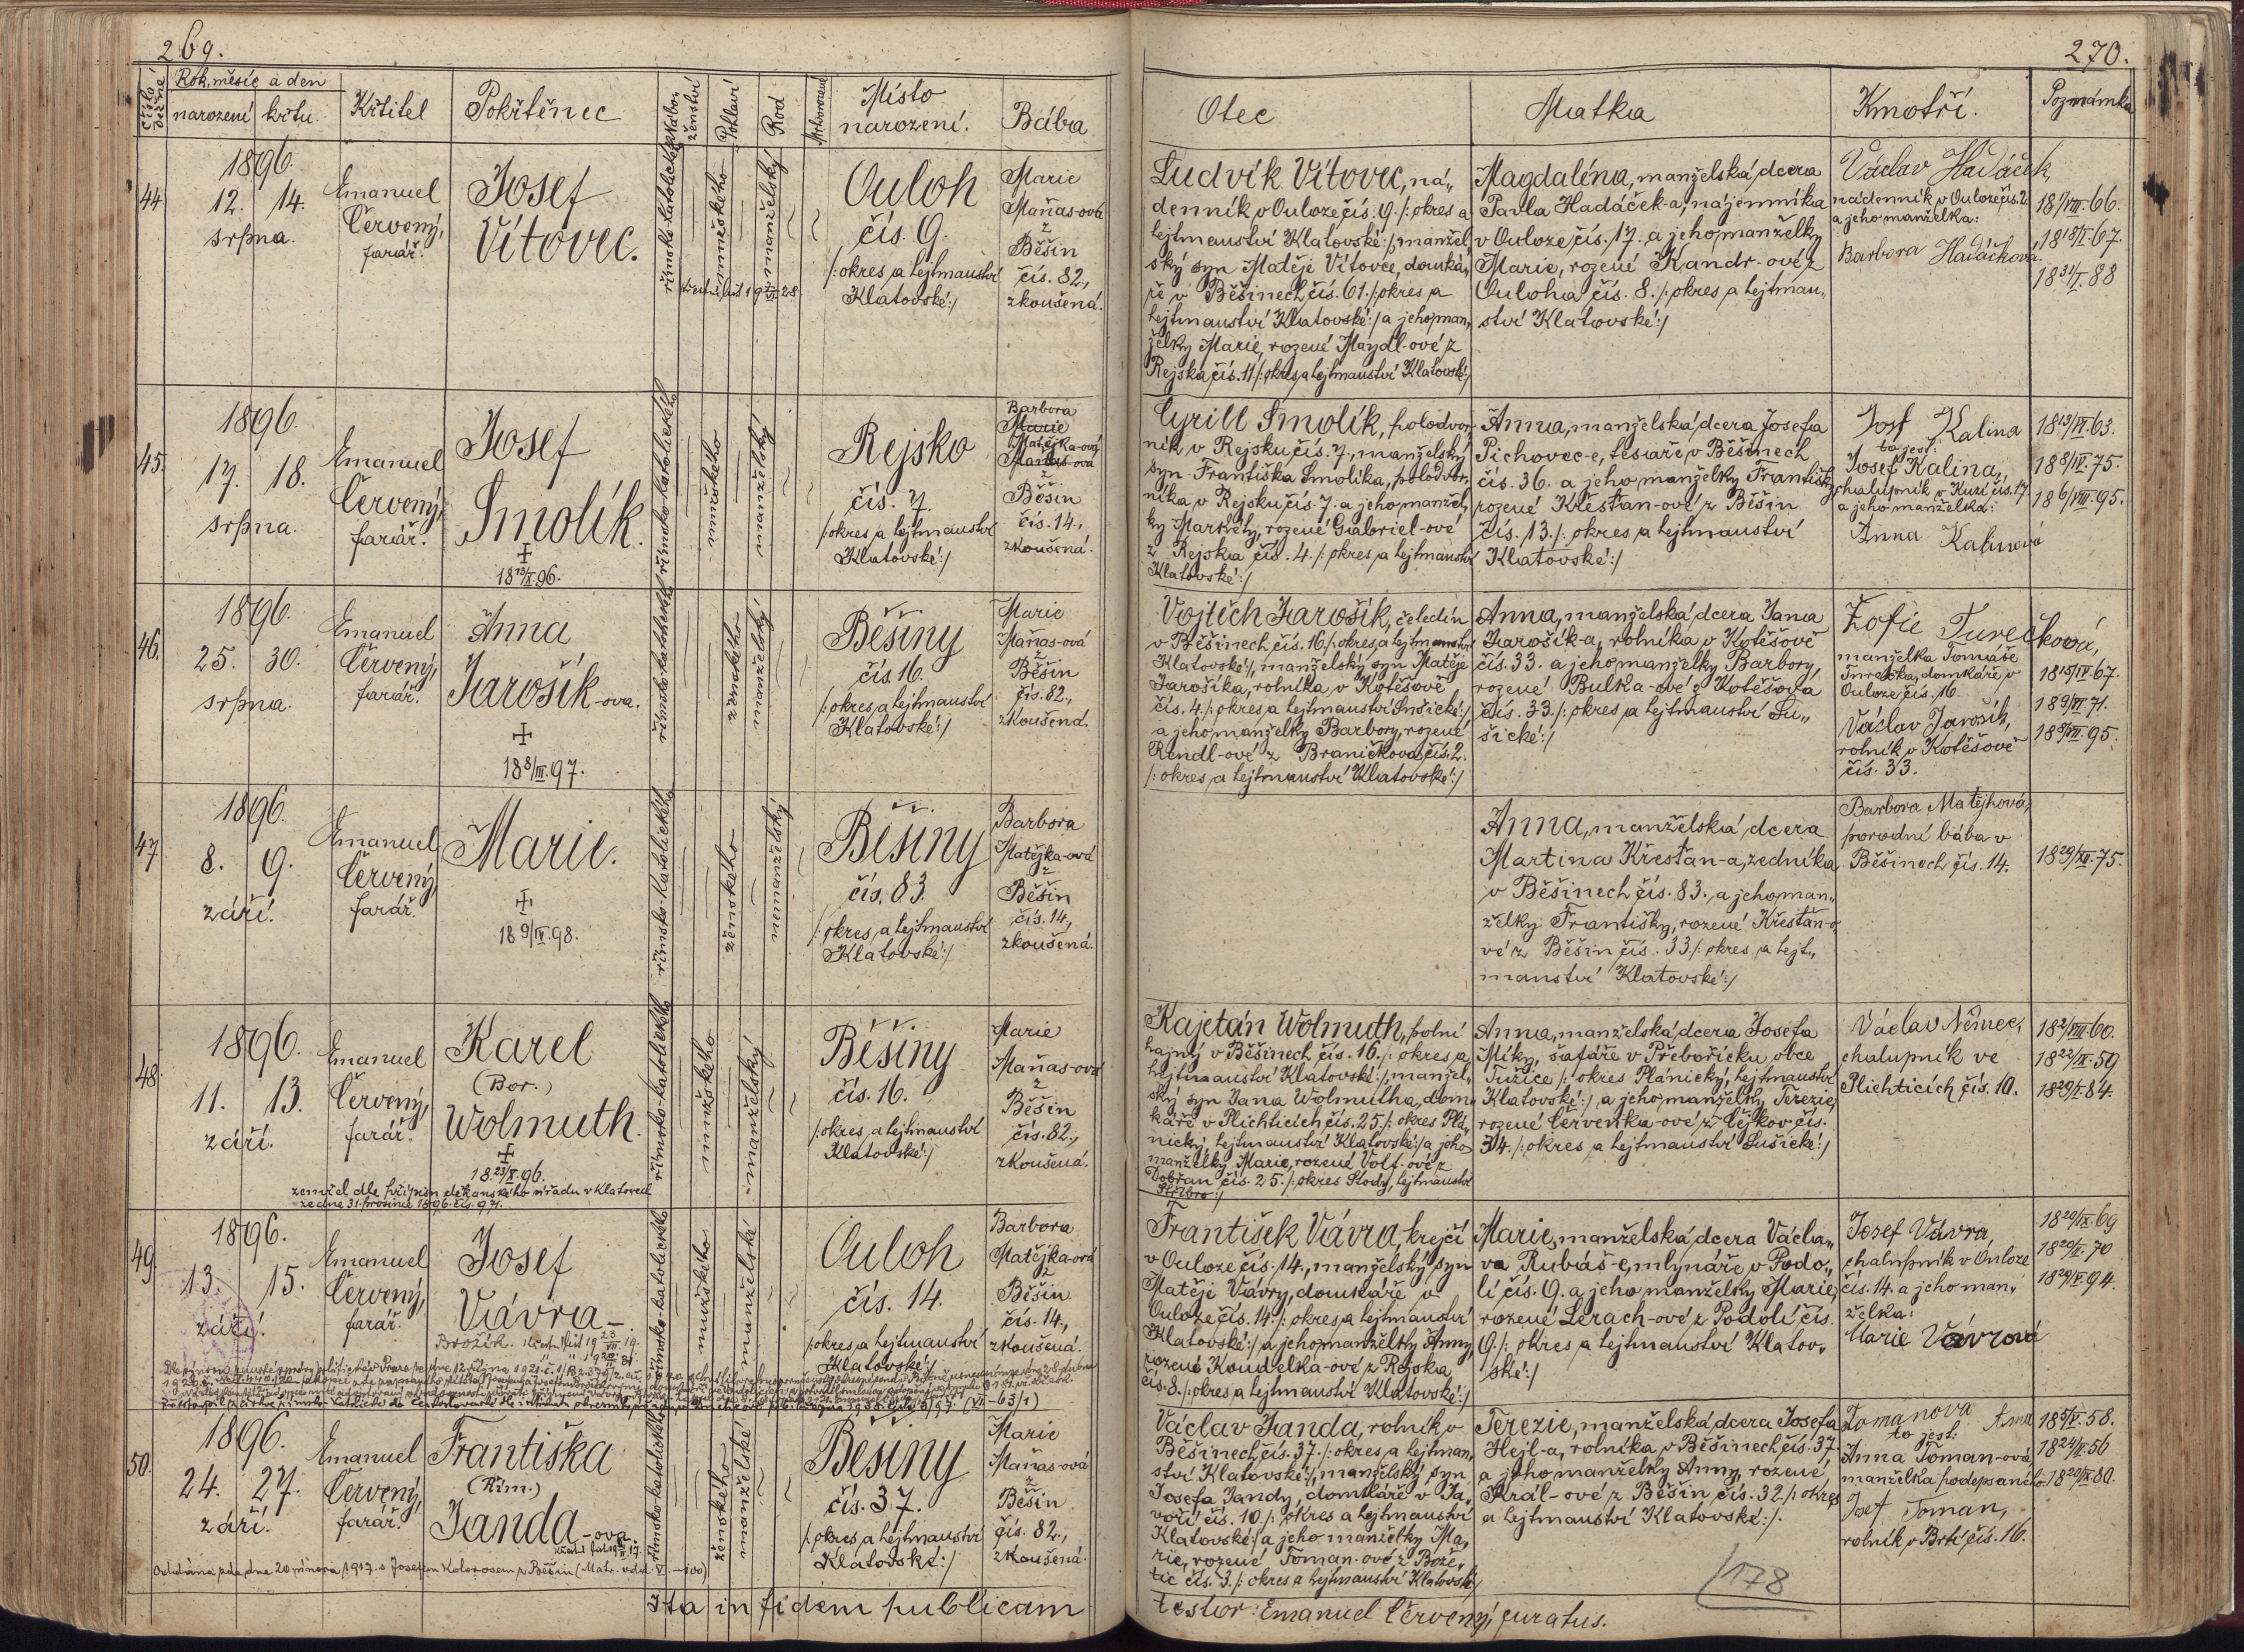 269.
Čísla běžná
Rok, měsíc a den
narození
křtu.
Křtitel
Pokřtěnec
Nábo-
ženství
Pohlaví
Rod
Mrtvorozené
Místo
narození.
Bába
44
1896.
12. 14.
srpna.
Emanuel
Červený,
farář.
Josef
Vítovec.
římsko-katolického
mužského
manželský
Ouloh
čís. 9.
/:okres a hejtmanství
Klatovské:/
Marie
Maňas-ová
z
Běšin
čís. 82.,
zkoušená.
45.
1896.
17. 18.
srpna.
Emanuel
Červený,
farář.
Josef
Smolík.
+
18 13/X. 96.
římsko-katolického
mužského
manželský
Rejsko
čís. 7.
/:okres a hejtmanství
Klatovské:/
Barbora
Marie
Matějka-ová
Maňas-ová
z
Běšin
čís. 14.,
zkoušená.
46.
1896.
25. 30.
srpna.
Emanuel
Červený,
farář.
Anna
Jarošík-ova.
+
18 8/III. 97.
římsko-katolického
ženského
manželský
Běšiny
čís. 16.
/:okres a hejtmanství
Klatovské:/
Marie
Maňas-ová
z
Běšin
čís. 82.,
zkoušená.
47
1896.
8. 9.
září.
Emanuel
Červený,
farář.
Marie.
+
18 9/IV. 98.
římsko-katolického
ženského
nemanželský
Běšiny
čís. 83.
/:okres a hejtmanství
Klatovské:/
Barbora
Matějka-ová
z
Běšin
čís. 14,
zkoušená.
48.
1896.
11. 13.
září.
Emanuel
Červený,
farář.
Karel
(Bor.)
Wolmuth.
+
18 23/X. 96.
zemřel dle přípisu děkanského úřadu v Klatovech
ze dne 31. prosince 1896. čís. 971.
římsko-katolického
mužského
manželský
Běšiny
čís. 16.
/:okres a hejtmanství
Klatovské:/
Marie
Maňas-ová
z
Běšin
čís. 82.,
zkoušená.
49.
1896.
13. 15.
září.
Emanuel
Červený,
farář.
Josef
Vávra-
Brožík.
římsko-katolického
mužského
manželské
Ouloh
čís. 14.
/:okres a hejtmanství
Klatovské:/
Barbora
Matějka-ová
z
Běšin
čís. 14.,
zkoušená.
50.
1896.
24. 27.
září.
Emanuel
Červený,
farář.
Františka
(Řím.)
Janda-ova.
římsko-katolického
ženského
manželské
Běšiny
čís. 37.
/:okres a hejtmanství
Klatovské:/
Marie
Maňas-ová
z
Běšin
čís. 82.,
zkoušená.
Oddána zde dne 20 února 1917. s Josefem Kolorosem z Běšin
Ita in fidem publicam
270.
Otec
Matka
Kmotři.
Poznámka
Ludvík Vítovec, ná„
denník v Ouloze čís. 9. /:okres a
hejtmanství Klatovské:/, manžel„
ský syn Matěje Vítovce, domká„
ře v Běšinech čís. 61. /:okres a
hejtmanství Klatovské:/ a jeho man„
želky Marie, rozené Maydl-ové z
Rejska čís. 11 /:okres a hejtmanství Klatovské:/
Magdaléna, manželská dcera
Pavla Hadáček-a, nájemníka
v Ouloze čís. 17. a jeho manželky
Marie, rozené Kandr-ové z
Ouloha čís. 8. /:okres a hejtman„
ství Klatovské:/
Václav Hadáček,
nádenník v Ouloze čís. 2.
a jeho manželka:
Barbora Hadáčková.
18 1/VIII. 66.
18 18/I. 67.
18 31/I. 88
Cyrill Smolík, polodvor„
ník v Rejsku čís. 7., manželský
syn Františka Smolíka, polodvor„
níka v Rejsku čís. 7. a jeho manžel„
ky Markéty, rozené Gabriel-ové
z Rejska čís. 4. /:okres a hejtmanství
Klatovské:/
Anna, manželská dcera Josefa
Pichovec-e, tesaře v Běšinech
čís. 36. a jeho manželky Františky
rozené Křesťan-ové z Běšin
čís. 13. /:okres a hejtmanství
Klatovské:/
Josf Kalina
to jest:
Josef Kalina,
chalupník v Kuzí čís. 17.
a jeho manželka:
Anna Kalinová
18 13/VI. 63.
18 8/IV. 75.
18 6/VIII. 95.
Vojtěch Jarošík, čeledín
v Běšinech čís. 16. /:okres a hejtmanství
Klatovské:/, manželský syn Matěje
Jarošíka, rolníka v Kotěšově
čís. 4. /:okres a hejtmanství Sušické:/
a jeho manželky Barbory, rozené
Rendl-ové z Braníčkova čís. 2.
/:okres a hejtmanství Klatovské:/
Anna, manželská dcera Jana
Jarošík-a, rolníka v Kotěšově
čís. 33. a jeho manželky Barbory,
rozené Bulka-ové z Kotěšova
čís. 33. /:okres a hejtmanství Su„
šické:/
Žofie Turečková,
manželka Tomáše
Turečka, domkáře v
Ouloze čís. 16.
Václav Jarošík,
rolník v Kotěšově
čís. 33.
18 15/IV. 67.
18 9/VI. 71.
Anna, manželská dcera
Martina Křesťan-a, zedníka
v Běšinech čís. 83., a jeho man„
želky Františky, rozené Křesťan-o
vé z Běšin čís. 33 /:okres a hejt„
manství Klatovské:/
Barbora Matějková,
porodní bába v
Běšinech čís. 14.
18 29/XI. 75.
Kajetán Wolmuth, polní
hajný v Běšinech čís. 16. /:okres a
hejtmanství Klatovské:/, manžel„
ský syn Jana Wolmutha, dom„
káře v Plichticích čís. 25. /:okres Plá„
nický, hejtmanství Klatovské:/ a jeho
manželky Marie, rozené Volf-ové z
Dobřan čís. 25. /:okres Stody, hejtmanství
Stříbro:/
Anna, manželská dcera Josefa
Míky, šafáře v Přebořicku, obce
Tužice /:okres Plánický, hejtmanství
Klatovské:/ a jeho manželky Terezie,
rozené Červenka-ové z Čejkov čís.
34. /:okres a hejtmanství Sušické:/
Václav Němec,
chalupník ve
Plichticích čís. 10.
18 2/VIII. 60.
18 22/IX. 59
18 29/I. 84.
František Vávra, krejčí
v Ouloze čís. 14., manželský syn
Matěje Vávry, domkáře v
Ouloze čís. 14. /:okres a hejtmanství
Klatovské:/ a jeho manželky Anny,
rozené Koudelka-ové z Rejska
čís. 8. /:okres a hejtmanství Klatovské:/
Marie, manželská dcera Václa„
va Rubáš-e, mlynáře v Podo„
lí čís. 9. a jeho manželky Marie,
rozené Lerach-ové z Podolí čís.
9. /:okres a hejtmanství Klatov„
ské:/
Josef Vávra,
chalupník v Ouloze
čís. 14. a jeho man„
želka:
Marie Vávrová
18 20/IX. 69
18 20/I. 70
18 29/V. 94.
Václav Janda, rolník v
Běšinech čís. 37. /:okres a hejtman„
ství Klatovské:/, manželský syn
Josefa Jandy, domkáře v Ja„
voří čís. 10. /:okres a hejtmanství
Klatovské:/ a jeho manželky Ma„
rie, rozené Toman-ové z Bože„
tic čís. 3. /:okres a hejtmanství Klatovské:/
Terezie, manželská dcera Josefa
Hejl-a, rolníka v Běšinech čís. 37.
a jeho manželky Anny, rozené
Král-ové z Běšin čís. 32. /:okres
a hejtmanství Klatovské:/.
Tomanova Anna
to jest:
Anna Toman-ová,
manželka podepsaného:
Josef Toman,
rolník v Brtí čís. 16.
18 5/V. 58.
18 24/II. 56
18 20/IX. 80.
178
testor: Emanuel Červený, curatus.